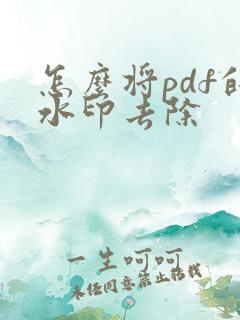 怎麼将pdf的
水印去除
一生呵呵
未经同意禁止搭载